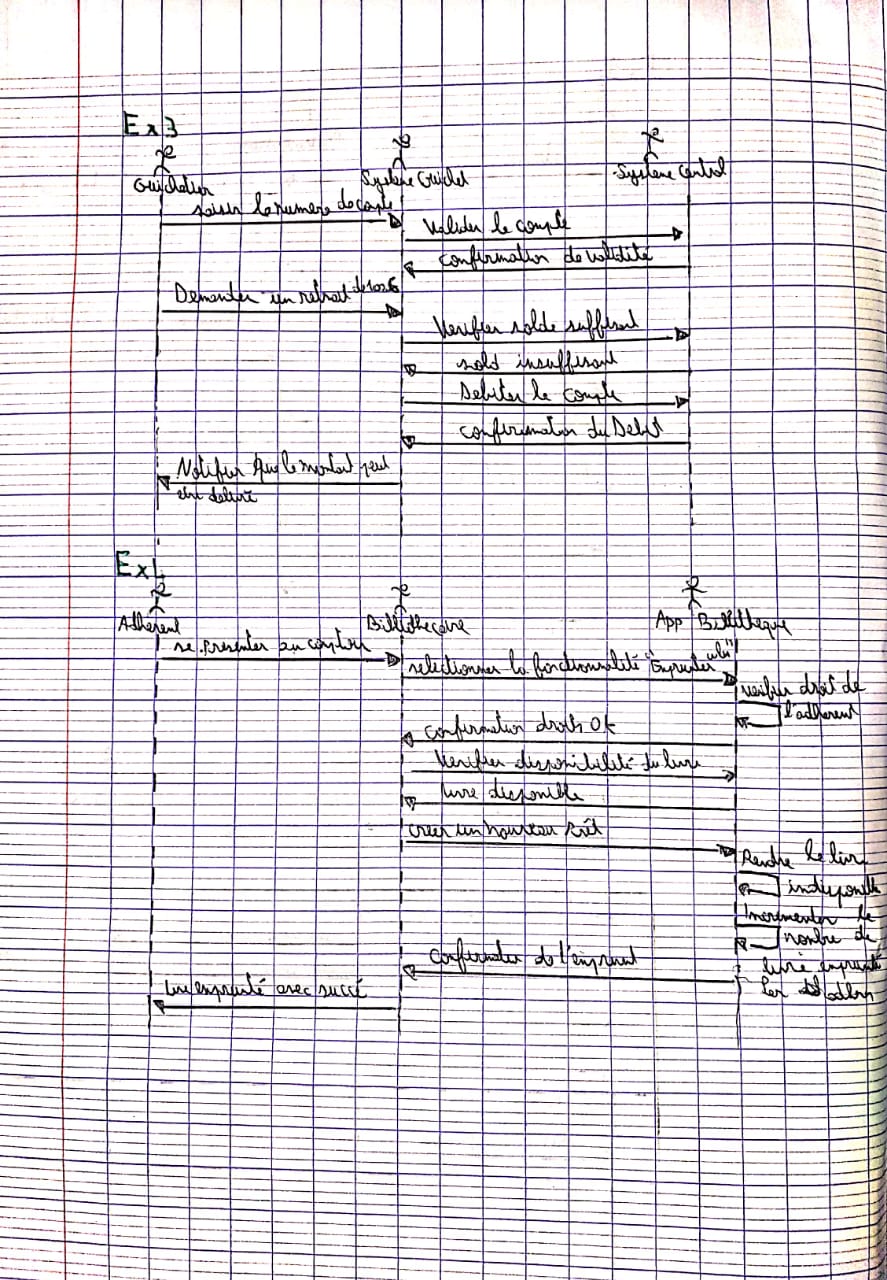 Ex 3
Guichetier
Systeme Guichet
Systeme Central
saisir le numero de compte
Valider le compte
confirmation de validité
Demander un retrait de
Verifier solde suffisant
sold insuffisant
Debiter le compte
confirmation du Debit
Notifier que le montant peut
etre delivré
Ex 4
Adherent
Bibliothecaire
App Bibliotheque
se presenter au comptoir
selectionner la fonctionnalité "Emprunter
verifier droit de
l'adherent
confirmation droits Ok
Verifier disponibilité du livre
livre disponible
creer un nouveau prêt
Rendre le livre
indisponible
Incrementer le
nombre de
livre emprunté
confirmation de l'emprunt
livre emprunté avec succé